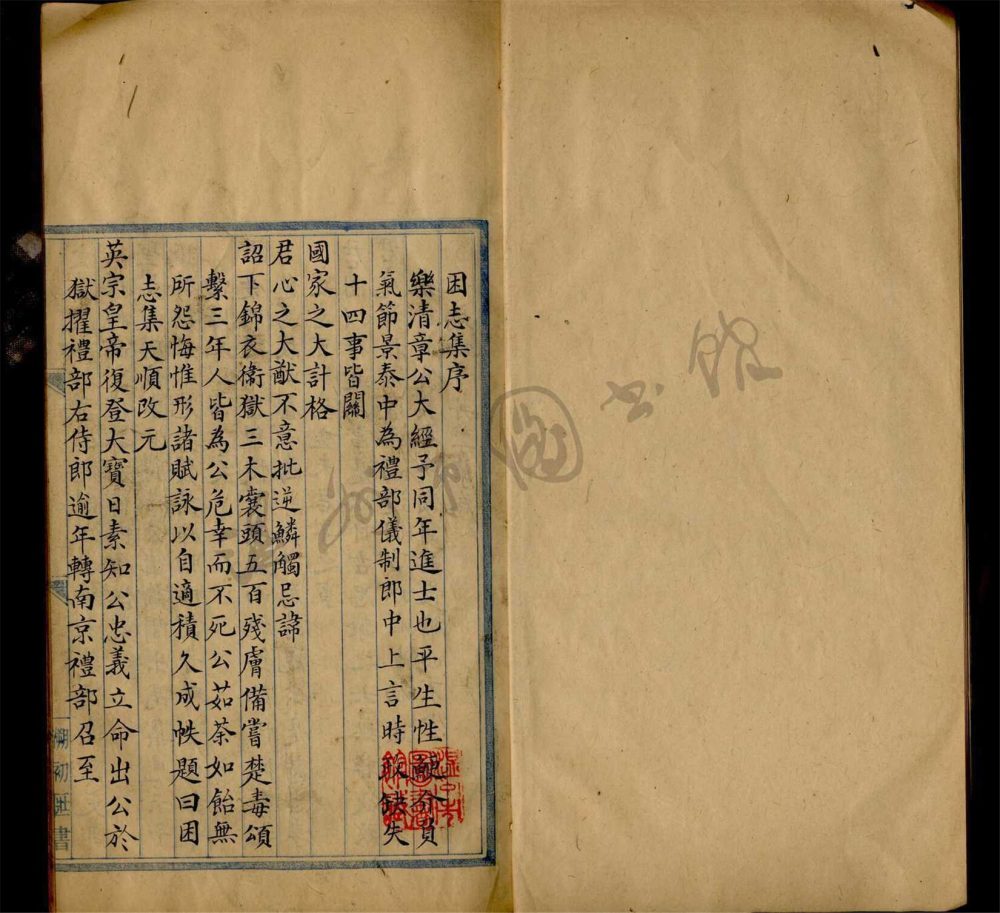 困志集序
樂清章公大經予同年進士也平生性介負
氣節景泰中為禮部儀制郎中上言時政缺失
十四事皆關
國家之大計格
君心之大猷不意批逆鱗觸忌諱
詔下錦衣衞獄三木囊頭五百殘膚備嘗楚毒頌
繫三年人皆為公危幸而不死公茹荼如飴無
所怨悔惟形諸賦詠以自適積久成帙題曰困
志集天順改元
英宗皇帝復登大寶日素知公忠義立命出公於
獄擢禮部右侍郎逾年轉南京禮部召至
圖書館